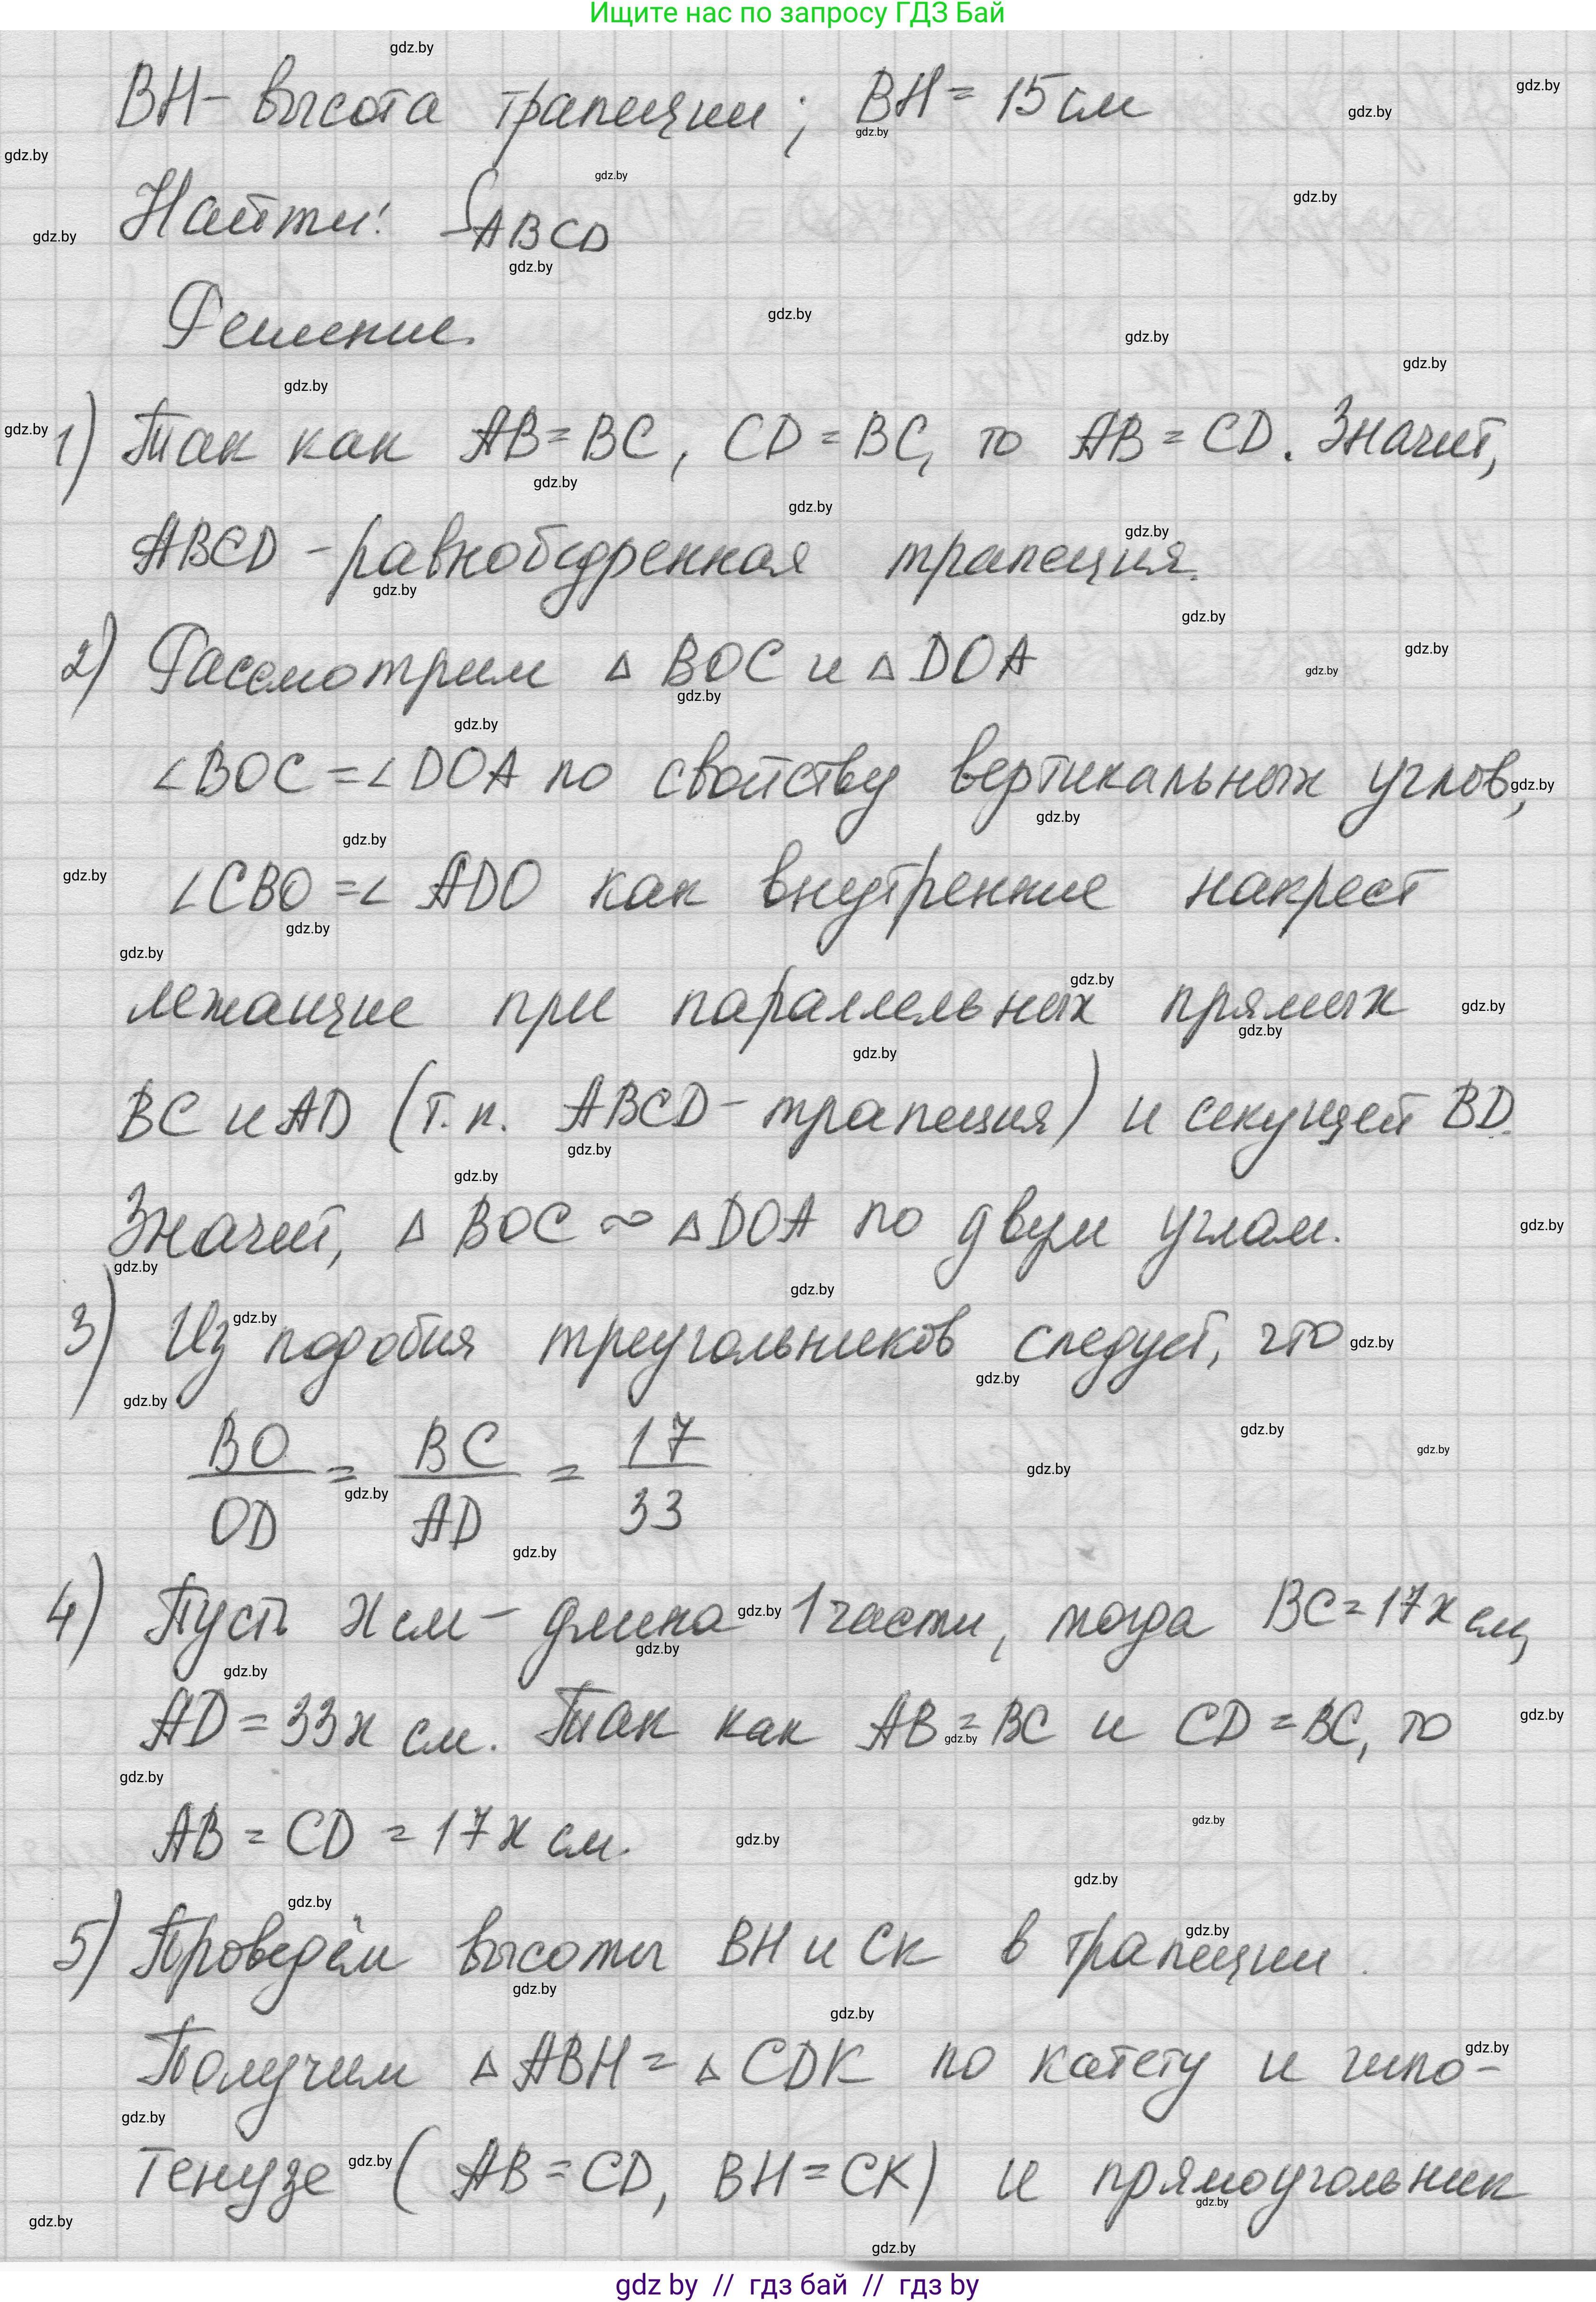 Ищите нас по запросу ГДЗ Бай
BH - высота трапеции; BH = 15 см
Найти: S ABCD
Решение.
1) Так как AB = BC, CD = BC, то AB = CD. Значит,
ABCD - равнобедренная трапеция.
2) Рассмотрим △ BOC и △ DOA
∠BOC = ∠DOA по свойству вертикальных углов,
∠CBO = ∠ ADO как внутренние накрест
лежащие при параллельных прямых
BC и AD (т.к. ABCD - трапеция) и секущей BD.
Значит, △ BOC ∾ △DOA по двум углам.
3) Из подобия треугольников следует, что
BO/OD = BC/AD = 17/33
4) Пусть x см - длина 1 части, тогда BC = 17x см,
AD = 33x см. Так как AB = BC и CD = BC, то
AB = CD = 17x см.
5) Проведём высоты BH и CK в трапеции.
Получим △ ABH = △ CDK по катету и гипо-
тенузе (AB = CD, BH = CK) и прямоугольник
gdz by // гдз бай // гдз by